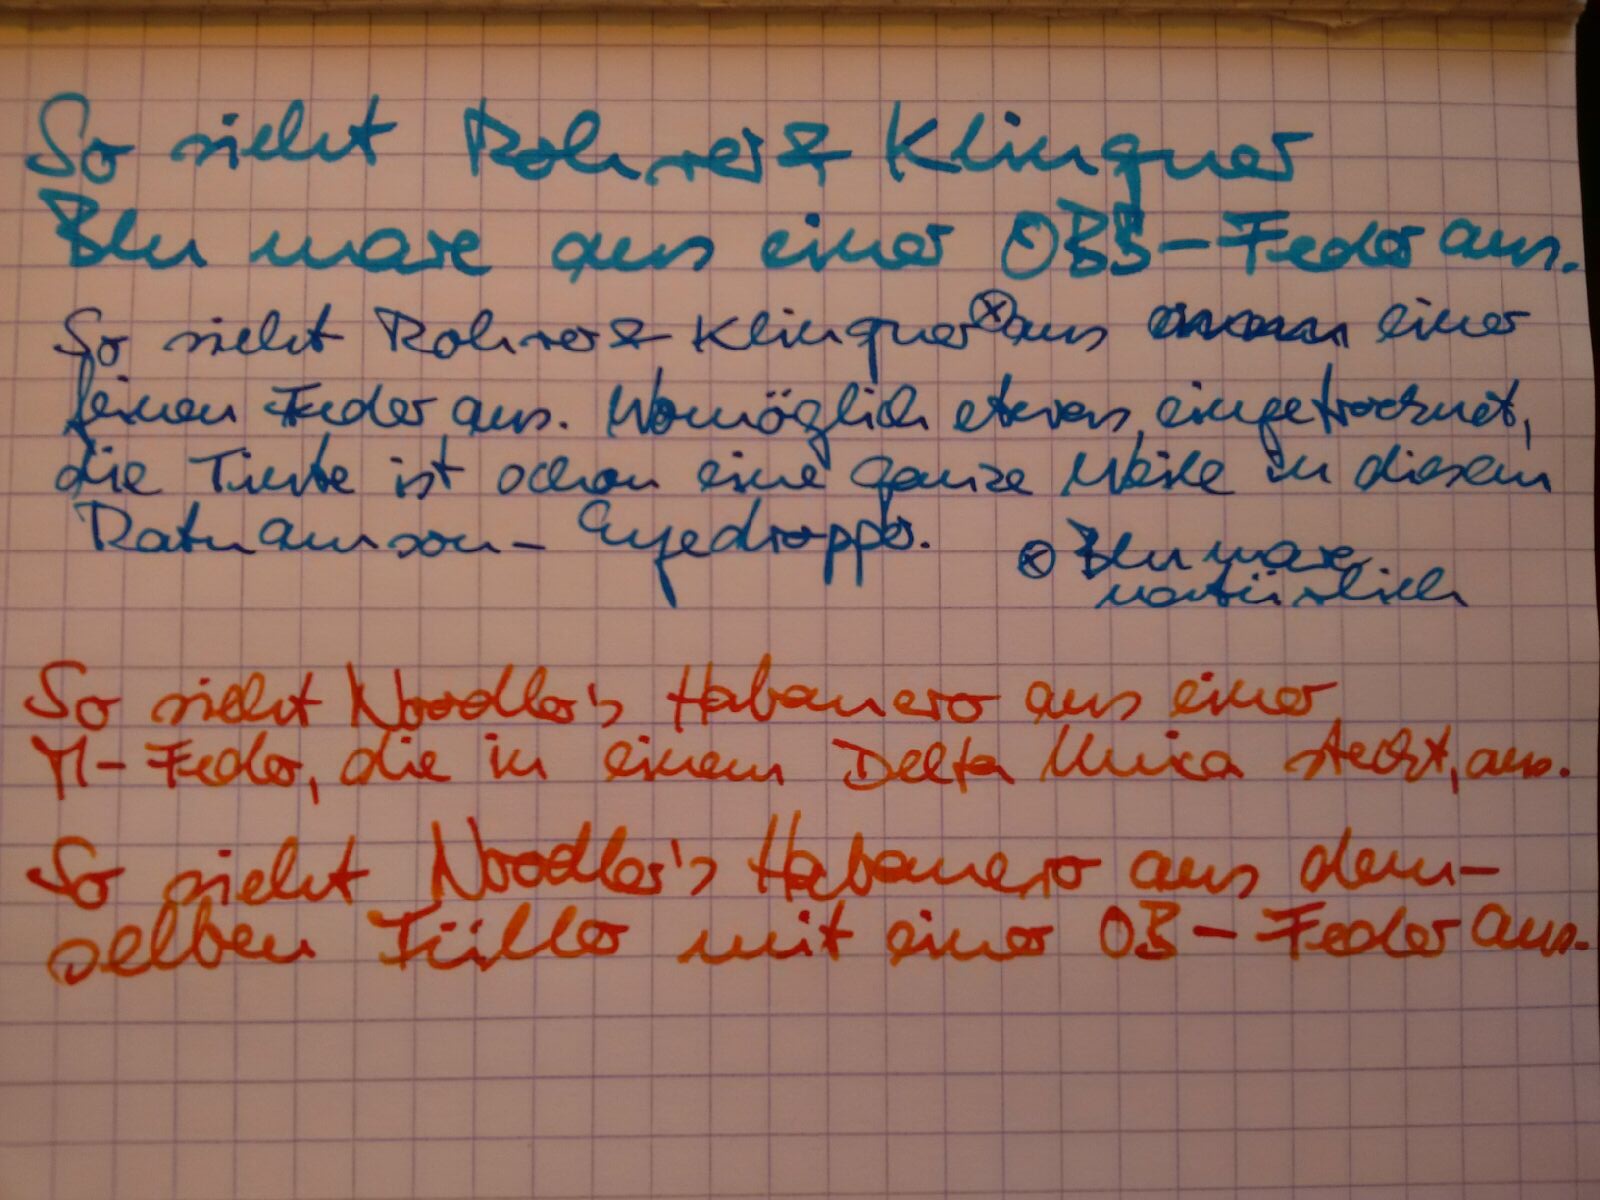 So sieht Rohrer & Klingner
Blu mare aus einer OBB-Feder aus.
So sieht Rohrer & Klingner ⊗ aus einer
feinen Feder aus. Womöglich etwas eingetrocknet,
die Tinte ist schon eine ganze Weile in diesem
Ratnamson-Eyedropper.
⊗ Blu mare
natürlich
So sieht Noodler's Habanero aus einer
M-Feder, die in einem Delta Unica steckt, aus.
So sieht Noodler's Habanero aus dem-
selben Füller mit einer OB-Feder aus.